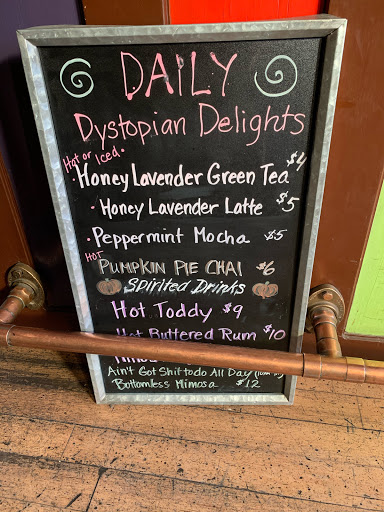 DAILY
Dystopian Delights
Hot or Iced
• Honey Lavender Green Tea $4
• Honey Lavender Latte $5
• Peppermint Mocha $5
HOT
PUMPKIN PIE CHAI $6
SPIRITED DRINKS
Hot Toddy $9
Hot Buttered Rum $10
Ain't Got Shit to do All Day
Bottomless Mimosa $12